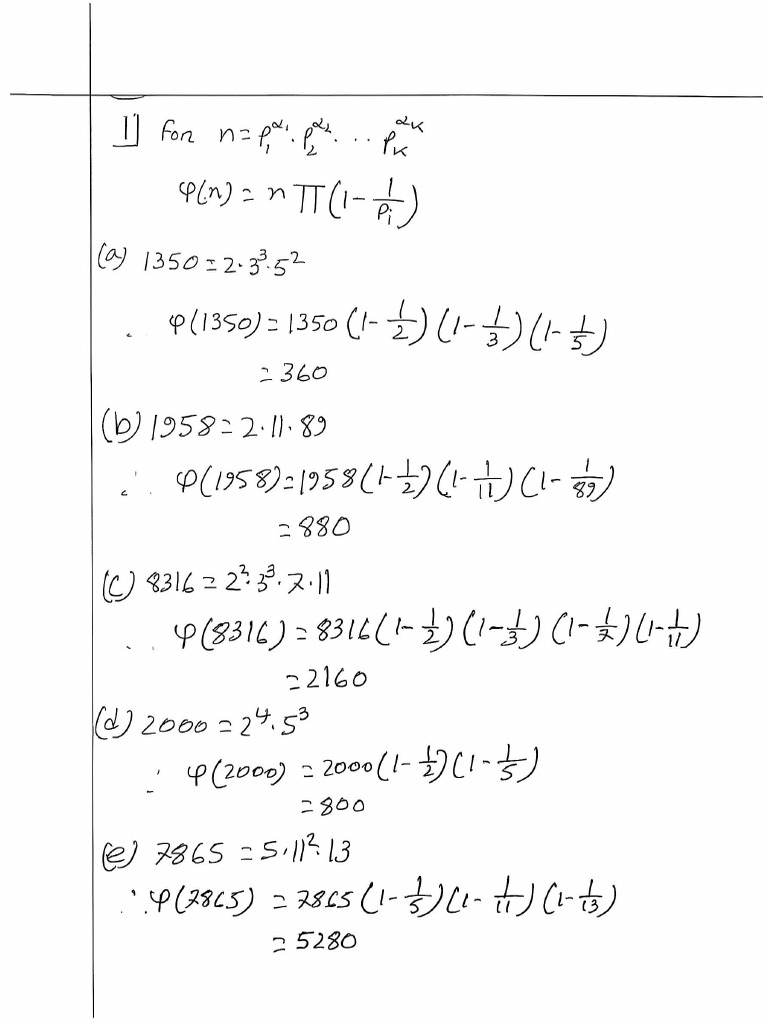 1] For n = p₁^α₁ · p₂^α₂ · ... p_K^α_K
φ(n) = n ∏(1 - 1/pᵢ)
(a) 1350 = 2·3³·5²
∴ φ(1350) = 1350 (1 - 1/2) (1 - 1/3) (1 - 1/5)
= 360
(b) 1958 = 2·11·89
∴ φ(1958) = 1958 (1 - 1/2) (1 - 1/11) (1 - 1/89)
= 880
(c) 8316 = 2²·3³·7·11
∴ φ(8316) = 8316 (1 - 1/2) (1 - 1/3) (1 - 1/7) (1 - 1/11)
= 2160
(d) 2000 = 2⁴·5³
∴ φ(2000) = 2000 (1 - 1/2) (1 - 1/5)
= 800
(e) 7865 = 5·11²·13
∴ φ(7865) = 7865 (1 - 1/5) (1 - 1/11) (1 - 1/13)
= 5280